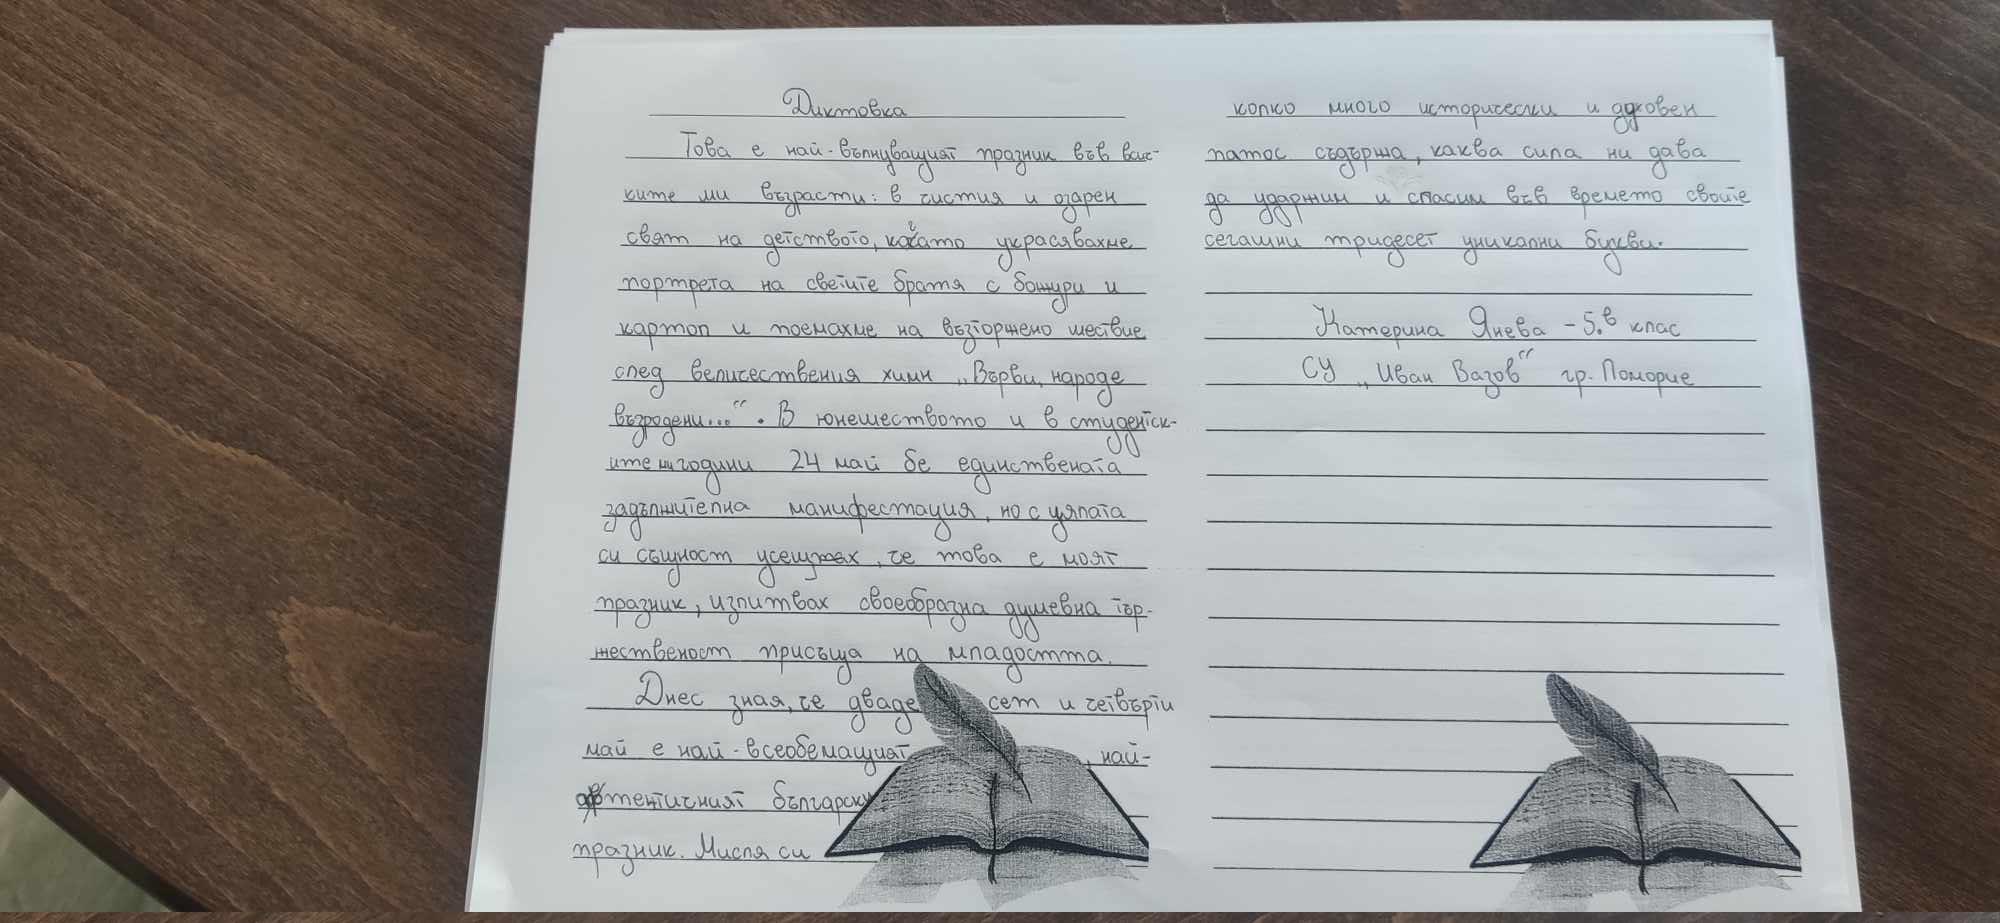 Диктовка
Това е най-вълнуващият празник във вси-
ките ми възрасти: в чистия и озарен
свят на детството, когато украсявахме
портрета на светите братя с божури и
картоп и поемахме на възторжено шествие
след величествения химн „Върви, народе
възродени...“. В юнешеството и в студентск-
ите ми години 24 май бе единствената
задължителна манифестация, но с цялата
си същност усещах, че това е моят
празник, изпитвах своеобразна душевна тър-
жественост присъща на младостта.
Днес зная, че двадесет и четвърти
май е най-всеобемащият, най-
автентичният български
празник. Мисля си
колко много исторически и духовен
патос съдържа, каква сила ни дава
да удържим и спасим във времето своите
сегашни тридесет уникални букви.
Катерина Янева - 5.в клас
СУ „Иван Вазов“ гр. Поморие